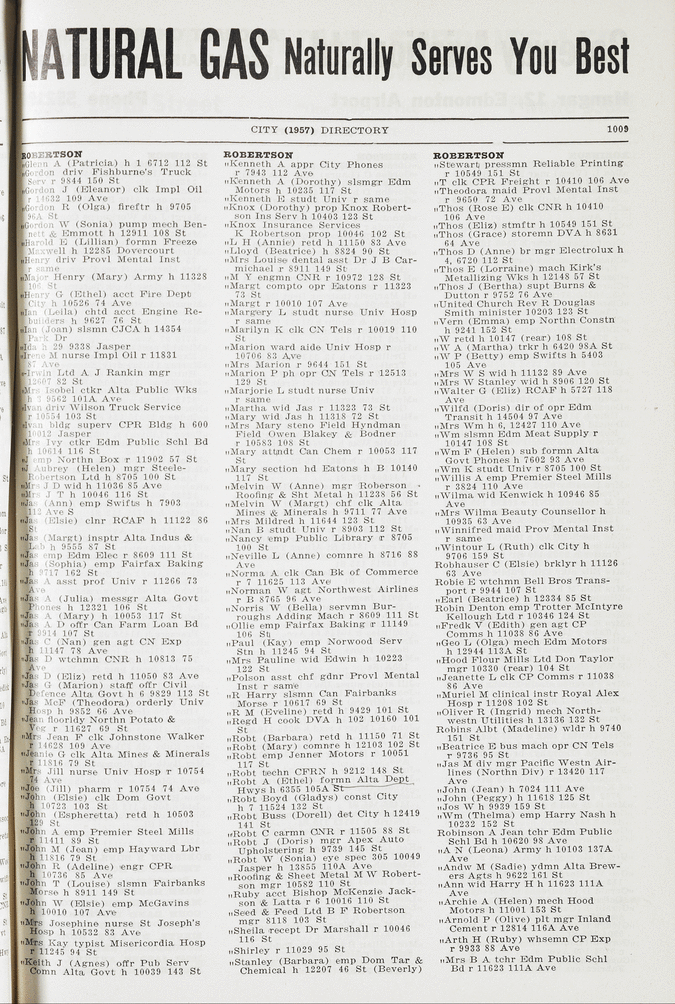 NATURAL GAS Naturally Serves You Best
CITY (1957) DIRECTORY 1009
ROBERTSON
"Glenn A (Patricia) h 1 6712 112 St
"Gordon driv Fishburne's Truck
Serv r 9844 150 St
"Gordon J (Eleanor) clk Impl Oil
r 14632 109 Ave
"Gordon R (Olga) fireftr h 9705
96A St
"Gordon W (Sonia) pump mech Ben-
nett & Emmott h 12911 108 St
"Harold E (Lillian) formn Freeze
Maxwell h 12285 Dovercourt
"Henry driv Provl Mental Inst
r same
"Major Henry (Mary) Army h 11328
106 St
"Henry G (Ethel) acct Fire Dept
City h 10526 74 Ave
"Ian (Leila) chtd acct Engine Re-
builders h 9627 76 St
"Ian (Joan) slsmn CJCA h 14354
Park Dr
"Ida h 29 9338 Jasper
"Irene M nurse Impl Oil r 11831
87 Ave
"Irwin Ltd A J Rankin mgr
12607 82 St
"Mrs Isobel ctkr Alta Public Wks
h 3 9562 101A Ave
"Ivan driv Wilson Truck Service
r 10554 103 St
"Ivan bldg superv CPR Bldg h 600
10012 Jasper
"Mrs Ivy ctkr Edm Public Schl Bd
h 10614 116 St
"J emp North Box r 11902 57 St
"J Aubrey (Helen) mgr Steele-
Robertson Ltd h 8705 100 St
"Mrs J D wid h 11036 85 Ave
"Mrs J T h 10046 116 St
"Jas (Ann) emp Swifts h 7903
112 Ave S
"Jas (Elsie) clnr RCAF h 11122 86
St
"Jas (Margt) insptr Alta Indus &
Lab h 9555 87 St
"Jas emp Edm Elec r 8609 111 St
"Jas (Sophia) emp Fairfax Baking
h 9717 162 St
"Jas A asst prof Univ r 11266 73
Ave
"Jas A (Julia) messgr Alta Govt
Phones h 12321 106 St
"Jas A (Mary) h 10053 117 St
"Jas A D offr Can Farm Loan Bd
r 9914 107 St
"Jas C (Nan) gen agt CN Exp
h 11147 78 Ave
"Jas D wtchmn CNR h 10813 75
Ave
"Jas D (Eliz) retd h 11050 83 Ave
"Jas G (Marion) staff offr Civil
Defence Alta Govt h 6 9829 113 St
"Jas McP (Theodora) orderly Univ
Hosp h 9852 66 Ave
"Jean floorldy Northn Potato &
Veg r 11627 69 St
"Mrs Jean F clk Johnstone Walker
r 14628 109 Ave
"Jeanie G clk Alta Mines & Minerals
r 11816 79 St
"Mrs Jill nurse Univ Hosp r 10754
74 Ave
"Joe (Jill) pharm r 10754 74 Ave
"John (Elsie) clk Dom Govt
h 10723 103 St
"John (Espheretta) retd h 10503
129 St
"John A emp Premier Steel Mills
r 11411 89 St
"John M (Jean) emp Hayward Lbr
h 11816 79 St
"John R (Adeline) engr CPR
h 10736 85 Ave
"John T (Louise) slsmn Fairbanks
Morse h 8911 149 St
"John W (Elsie) emp McGavins
h 10010 107 Ave
"Mrs Josephine nurse St Joseph's
Hosp h 10532 83 Ave
"Mrs Kay typist Misericordia Hosp
r 11245 94 St
"Keith J (Agnes) offr Pub Serv
Comn Alta Govt h 10039 143 St
ROBERTSON
"Kenneth A appr City Phones
r 7943 112 Ave
"Kenneth A (Dorothy) slsmgr Edm
Motors h 10235 117 St
"Kenneth E studt Univ r same
"Knox (Dorothy) prop Knox Robert-
son Ins Serv h 10403 123 St
"Knox Insurance Services
K Robertson prop 10046 102 St
"L H (Annie) retd h 11150 83 Ave
"Lloyd (Beatrice) h 8824 90 St
"Mrs Louise dental asst Dr J B Car-
michael r 8911 149 St
"M Y engmn CNR r 10972 128 St
"Margt compto opr Eatons r 11323
73 St
"Margt r 10010 107 Ave
"Margery L studt nurse Univ Hosp
r same
"Marilyn K clk CN Tels r 10019 110
St
"Marion ward aide Univ Hosp r
10706 83 Ave
"Mrs Marion r 9644 151 St
"Marion P ph opr CN Tels r 12513
129 St
"Marjorie L studt nurse Univ
r same
"Martha wid Jas r 11323 73 St
"Mary wid Jas h 11318 72 St
"Mrs Mary steno Field Hyndman
Field Owen Blakey & Bodner
r 10583 108 St
"Mary attndt Can Chem r 10053 117
St
"Mary section hd Eatons h B 10140
117 St
"Melvin W (Anne) mgr Roberson
Roofing & Sht Metal h 11238 56 St
"Melvin W (Margt) chf clk Alta
Mines & Minerals h 9711 77 Ave
"Mrs Mildred h 11644 123 St
"Nan B studt Univ r 8903 112 St
"Nancy emp Public Library r 8705
100 St
"Neville L (Anne) comnre h 8716 88
Ave
"Norma A clk Can Bk of Commerce
r 7 11625 113 Ave
"Norman W agt Northwest Airlines
r B 8765 96 Ave
"Norris W (Bella) servmn Bur-
roughs Adding Mach r 8609 111 St
"Ollie emp Fairfax Baking r 11149
106 St
"Paul (Kay) emp Norwood Serv
Stn h 11245 94 St
"Mrs Pauline wid Edwin h 10223
122 St
"Polson asst chf gdnr Provl Mental
Inst r same
"R Harry slsmn Can Fairbanks
Morse r 10617 69 St
"R M (Eveline) retd h 9429 101 St
"Regd H cook DVA h 102 10160 101
St
"Robt (Barbara) retd h 11150 71 St
"Robt (Mary) comnre h 12103 102 St
"Robt emp Jenner Motors r 10051
117 St
"Robt techn CFRN h 9212 148 St
"Robt A (Ethel) formn Alta Dept
Hwys h 6355 105A St
"Robt Boyd (Gladys) const City
h 7 11524 132 St
"Robt Buss (Dorell) det City h 12419
141 St
"Robt C carmn CNR r 11505 88 St
"Robt J (Doris) mgr Apex Auto
Upholstering h 9739 145 St
"Robt W (Sonia) eye spec 305 10049
Jasper h 13855 110A Ave
"Roofing & Sheet Metal M W Robert-
son mgr 10582 110 St
"Ruby acct Bishop McKenzie Jack-
son & Latta r 6 10016 110 St
"Seed & Feed Ltd B F Robertson
mgr 8118 103 St
"Sheila recept Dr Marshall r 10046
116 St
"Shirley r 11029 95 St
"Stanley (Barbara) emp Dom Tar &
Chemical h 12207 46 St (Beverly)
ROBERTSON
"Stewart pressmn Reliable Printing
r 10549 151 St
"T clk CPR Freight r 10410 106 Ave
"Theodora maid Provl Mental Inst
r 9650 72 Ave
"Thos (Rose E) clk CNR h 10410
106 Ave
"Thos (Eliz) stmftr h 10549 151 St
"Thos (Grace) storemn DVA h 8631
64 Ave
"Thos D (Anne) br mgr Electrolux h
4, 6720 112 St
"Thos E (Lorraine) mach Kirk's
Metallizing Wks h 12148 57 St
"Thos J (Bertha) supt Burns &
Dutton r 9752 76 Ave
"United Church Rev R Douglas
Smith minister 10203 123 St
"Vern (Emma) emp Northn Constn
h 9241 152 St
"W retd h 10147 (rear) 108 St
"W A (Martha) trkr h 6420 98A St
"W P (Betty) emp Swifts h 5403
105 Ave
"Mrs W S wid h 11132 89 Ave
"Mrs W Stanley wid h 8906 120 St
"Walter G (Eliz) RCAF h 5727 118
Ave
"Wilfd (Doris) dir of opr Edm
Transit h 14504 97 Ave
"Mrs Wm h 6, 12427 110 Ave
"Wm slsmn Edm Meat Supply r
10147 108 St
"Wm F (Helen) sub formn Alta
Govt Phones h 7602 93 Ave
"Wm K studt Univ r 8705 100 St
"Willis A emp Premier Steel Mills
r 3824 110 Ave
"Wilma wid Kenwick h 10946 85
Ave
"Mrs Wilma Beauty Counsellor h
10935 63 Ave
"Winnifred maid Prov Mental Inst
r same
"Wintour L (Ruth) clk City h
9706 159 St
Robhauser C (Elsie) brklyr h 11126
63 Ave
Robie E wtchmn Bell Bros Trans-
port r 9944 107 St
"Earl (Beatrice) h 12334 85 St
Robin Denton emp Trotter McIntyre
Kellough Ltd r 10346 124 St
"Fredk V (Edith) gen agt CP
Comms h 11038 86 Ave
"Geo L (Olga) mech Edm Motors
h 12944 113A St
"Hood Flour Mills Ltd Don Taylor
mgr 10330 (rear) 104 St
"Jeanette L clk CP Comms r 11038
86 Ave
"Muriel M clinical instr Royal Alex
Hosp r 11208 102 St
"Oliver R (Ingrid) mech North-
westn Utilities h 13136 132 St
Robins Albt (Madeline) wldr h 9740
151 St
"Beatrice E bus mach opr CN Tels
r 9736 95 St
"Jas M div mgr Pacific Westn Air-
lines (Northn Div) r 13420 117
Ave
"John (Jean) h 7024 111 Ave
"John (Peggy) h 11618 125 St
"Jos W h 9939 159 St
"Wm (Thelma) emp Harry Nash h
10232 152 St
Robinson A Jean tchr Edm Public
Schl Bd h 10620 98 Ave
"A N (Leona) Army h 10103 137A
Ave
"Andw M (Sadie) ydmn Alta Brew-
ers Agts h 9622 161 St
"Ann wid Harry H h 11623 111A
Ave
"Archie A (Helen) mech Hood
Motors h 11001 153 St
"Arnold P (Olive) plt mgr Inland
Cement r 12814 116A Ave
"Arth H (Ruby) whsemn CP Exp
r 9933 88 Ave
"Mrs B A tchr Edm Public Schl
Bd r 11623 111A Ave